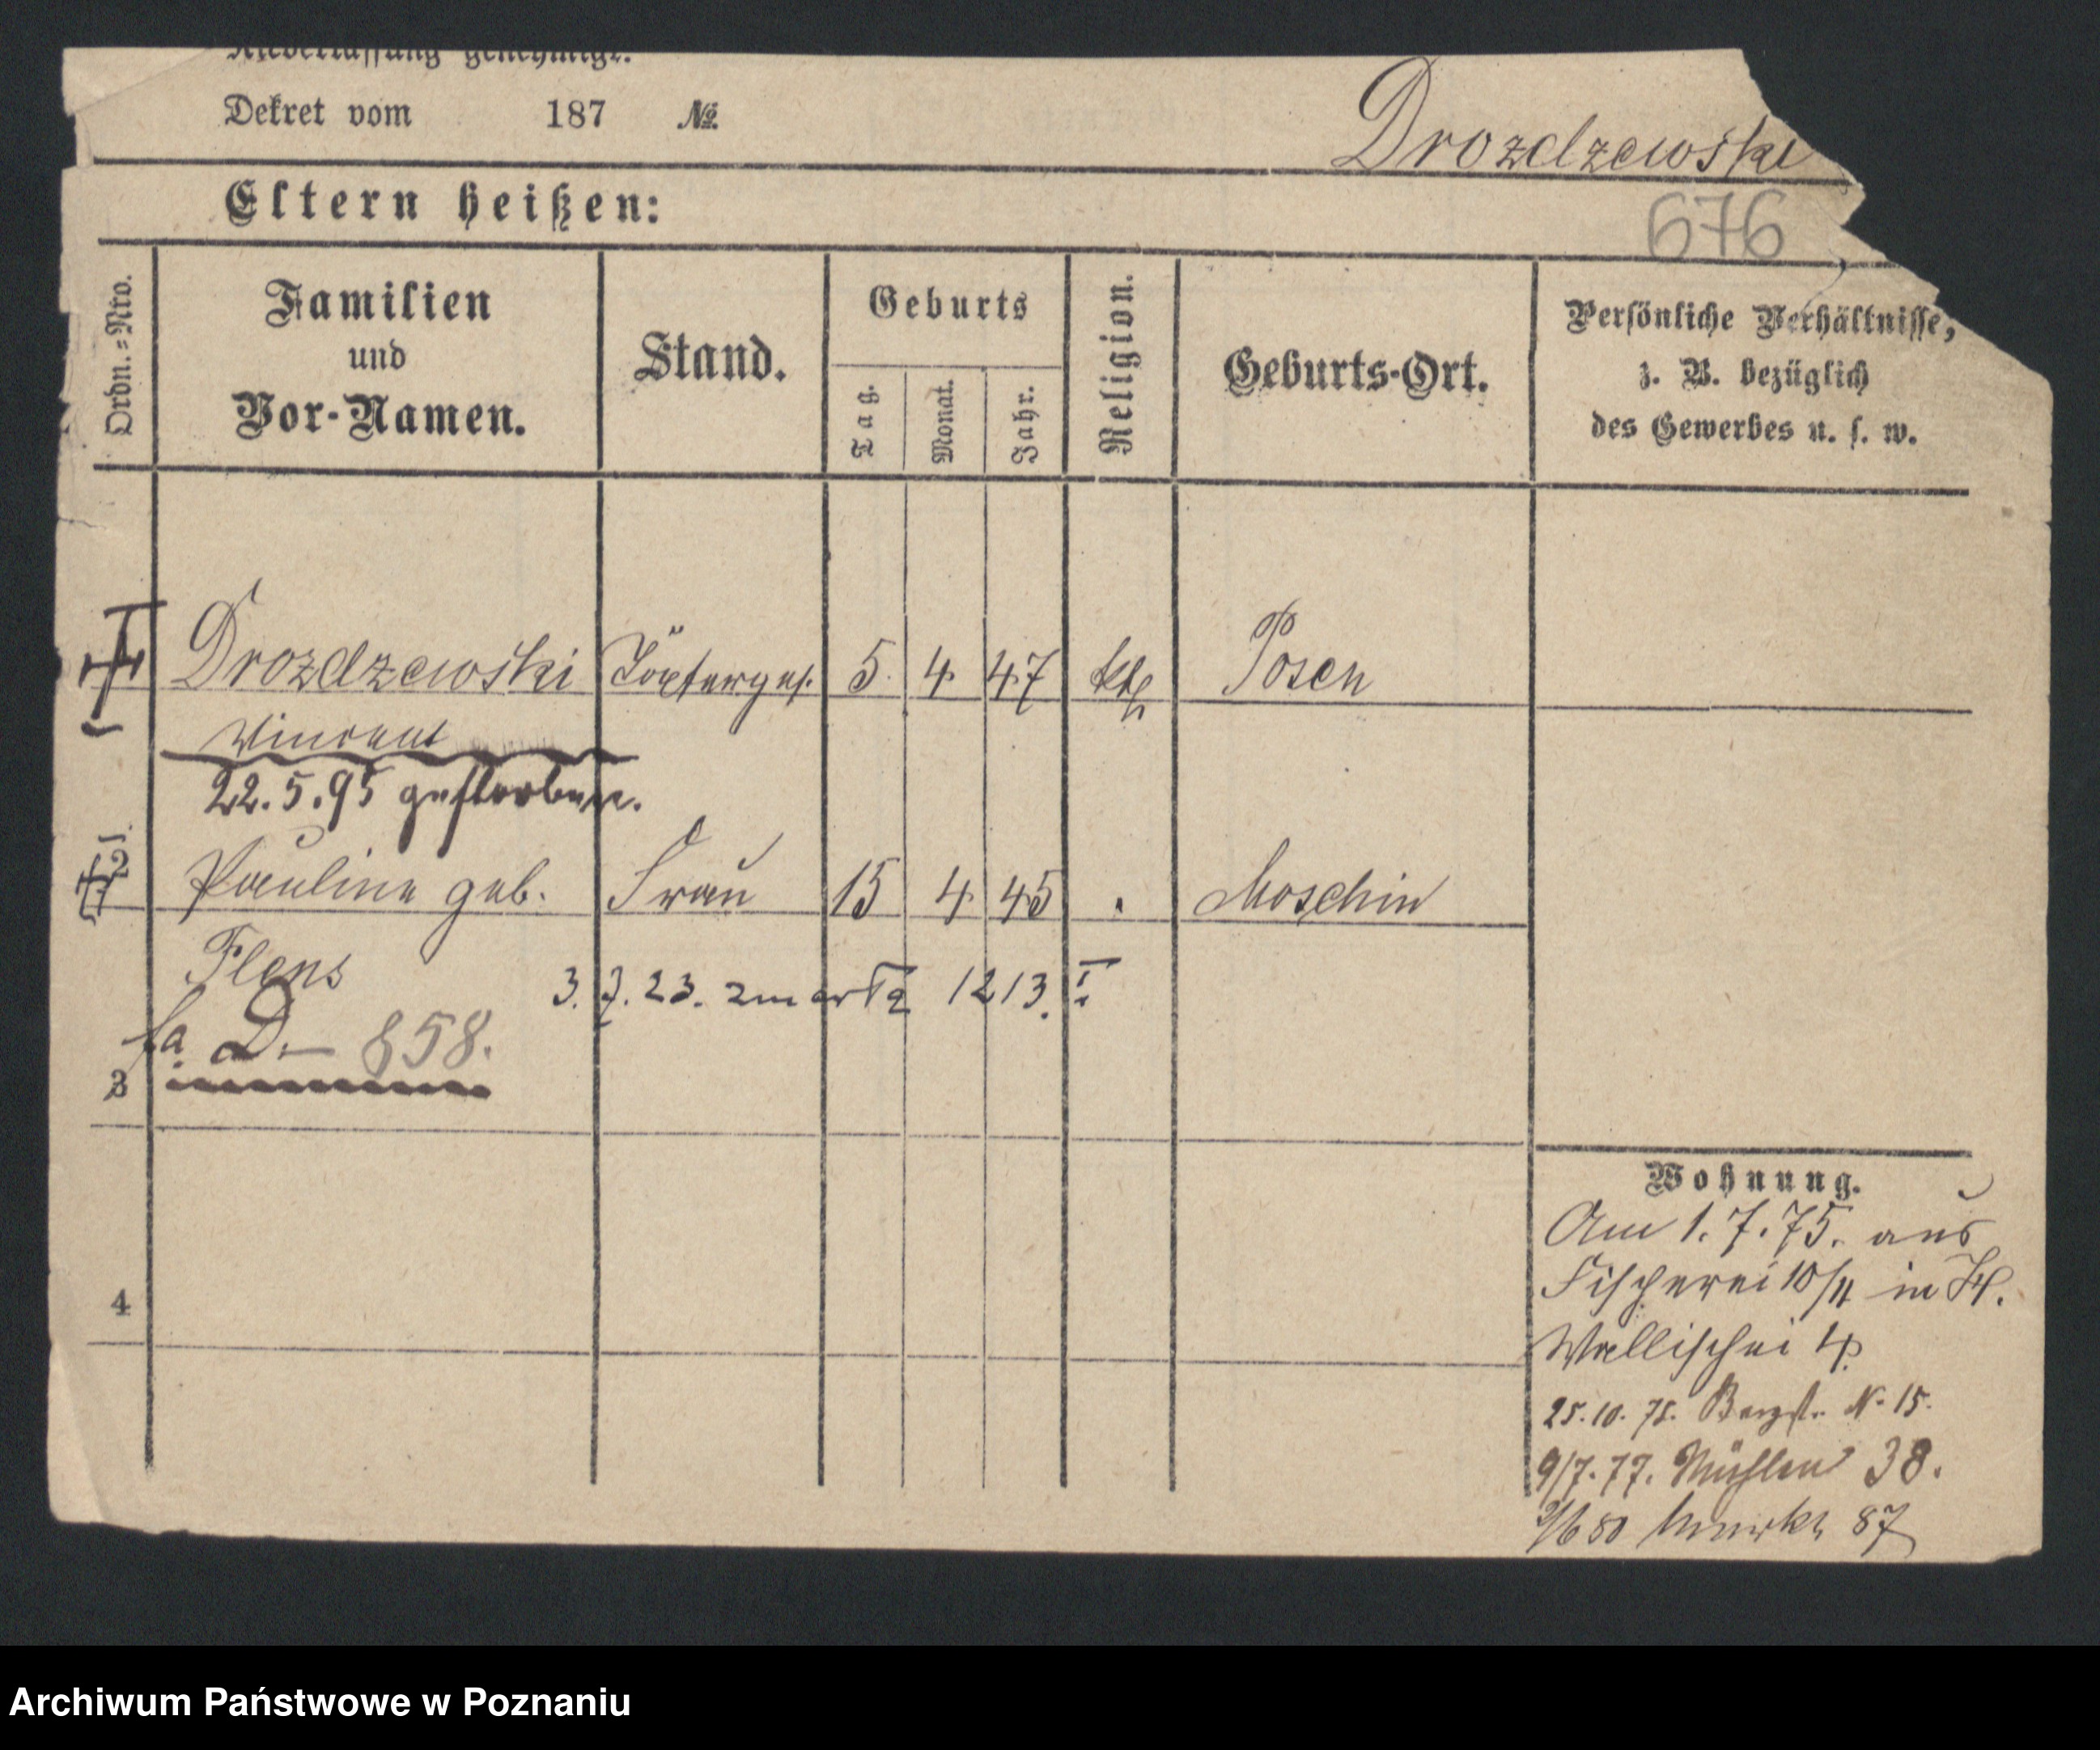 Niederlassung genehmigt.
Dekret vom 187 №
Drozdzewski
Eltern heißen:
676
Ordn.-Nro.
Familien
und
Vor-Namen.
Stand.
Geburts
Tag.
Monat.
Jahr.
Religion.
Geburts-Ort.
Persönliche Verhältnisse,
z. B. bezüglich
des Gewerbes u. s. w.
Drozdzewski Töpferges. 5. 4. 47 kth Posen
Vincent
22.5.95 gestorben.
2 Pauline geb. Frau 15 4 45 Moschin
Flens
3. 7. 23. zmarła 1213. I
fa. D.- 858.
3
4
Wohnung.
Am 1.7.75. aus
Fischerei 10/11 in
Wallischei 4.
25.10.75. Bergstr. N. 15.
9/7.77. Mühlen 38.
80 Markt 87
Archiwum Państwowe w Poznaniu